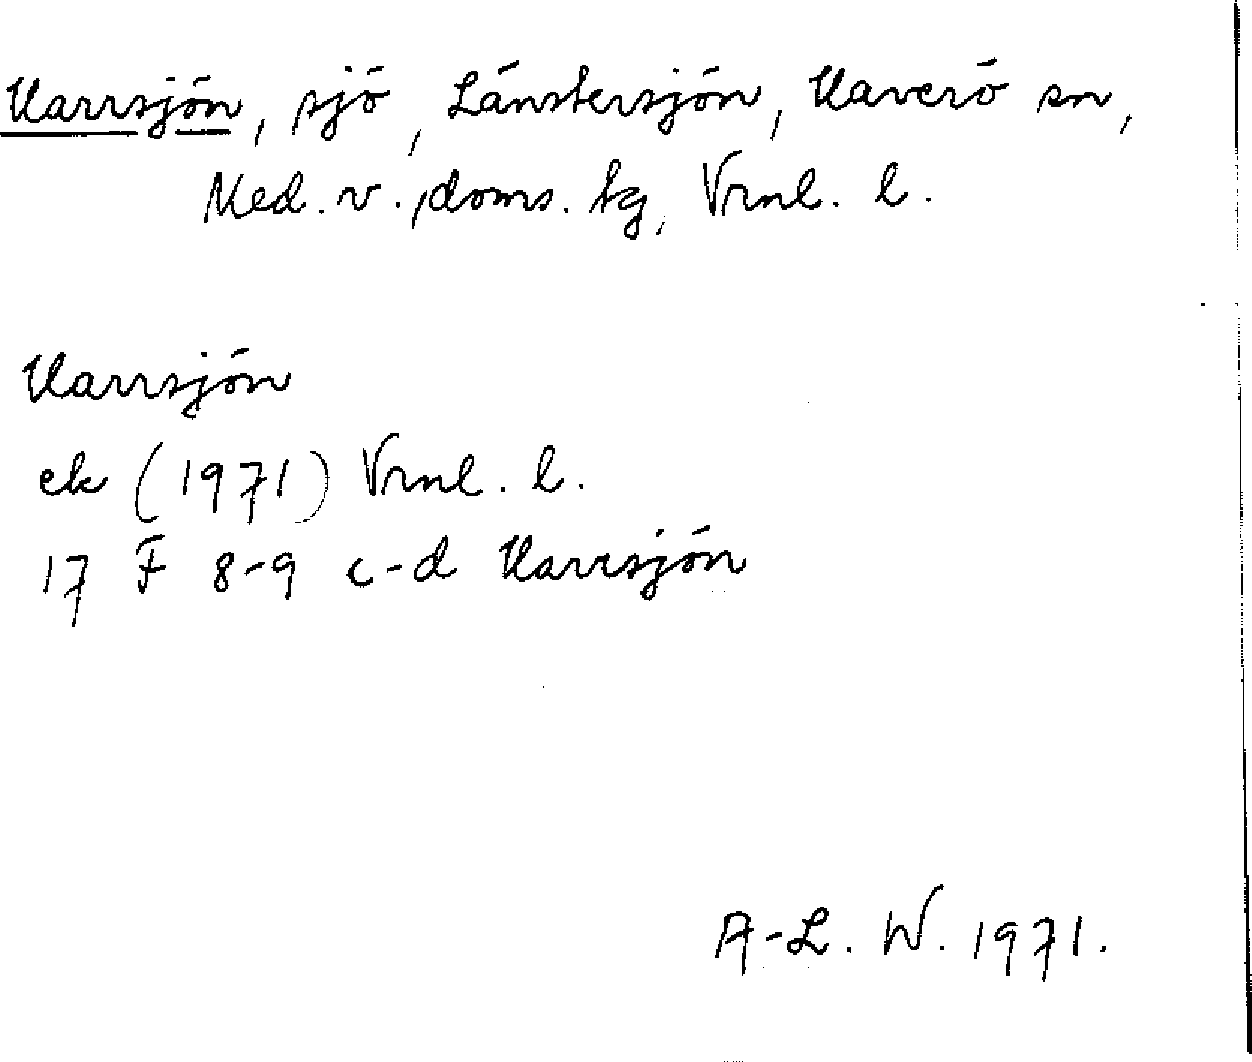 Harrsjön, sjö, Länstersjön, Haverö sn,
Med. v. doms. tg, Vrnl. l.
Harrsjön
ek (1971) Vrnl. l.
17 F 8-9 c-d Harrsjön
A-L. W. 1971.